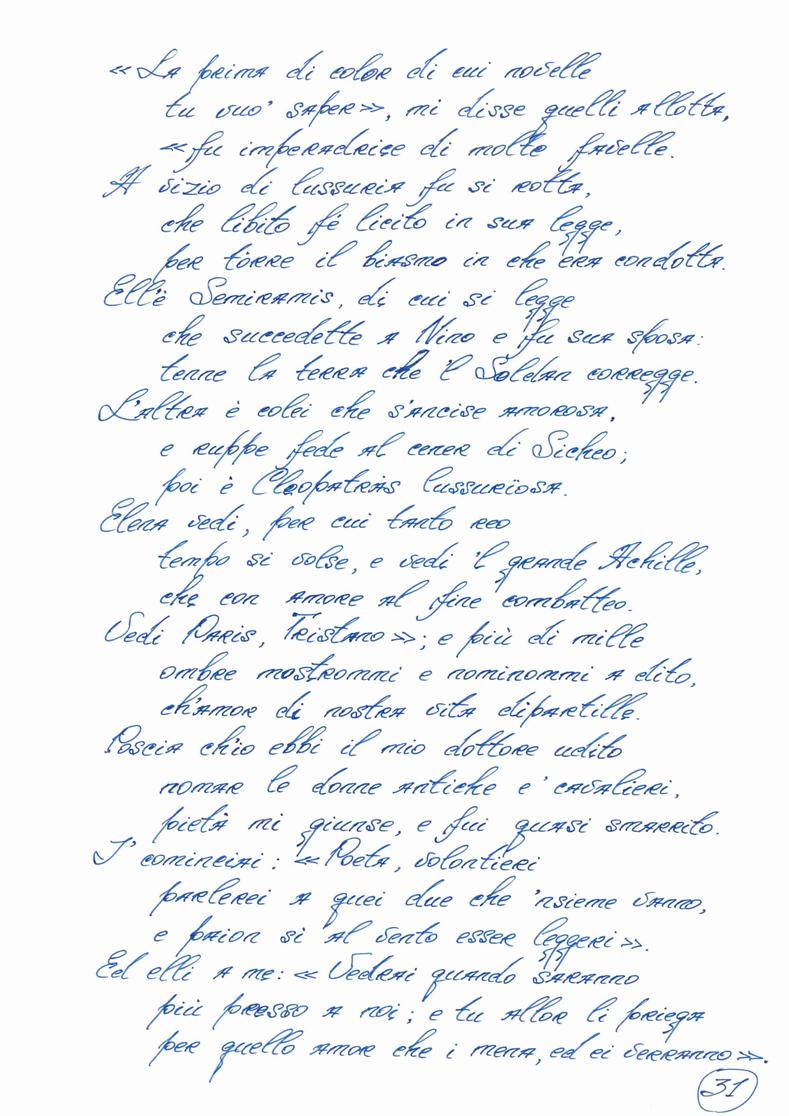 «La prima di color di cui novelle
tu vuo' saper», mi disse quelli allotta,
«fu imperadrice di molte favelle.
A vizio di lussuria fu sì rotta,
che libito fé licito in sua legge,
per tòrre il biasmo in che era condotta.
Ell'è Semiramis, di cui si legge
che succedette a Nino e fu sua sposa:
tenne la terra che 'l Soldan corregge.
L'altra è colei che s'ancise amorosa,
e ruppe fede al cener di Sicheo;
poi è Cleopatràs lussurïosa.
Elena vedi, per cui tanto reo
tempo si volse, e vedi 'l grande Achille,
che con amore al fine combatteo.
Vedi Paris, Tristano»; e più di mille
ombre mostrommi e nominommi a dito,
ch'amor di nostra vita dipartille.
Poscia ch'io ebbi il mio dottore udito
nomar le donne antiche e ' cavalieri,
pietà mi giunse, e fui quasi smarrito.
I' cominciai: «Poeta, volontieri
parlerei a quei due che 'nsieme vanno,
e paion sì al vento esser leggeri».
Ed elli a me: «Vedrai quando saranno
più presso a noi; e tu allor li priega
per quello amor che i mena, ed ei verranno».
31